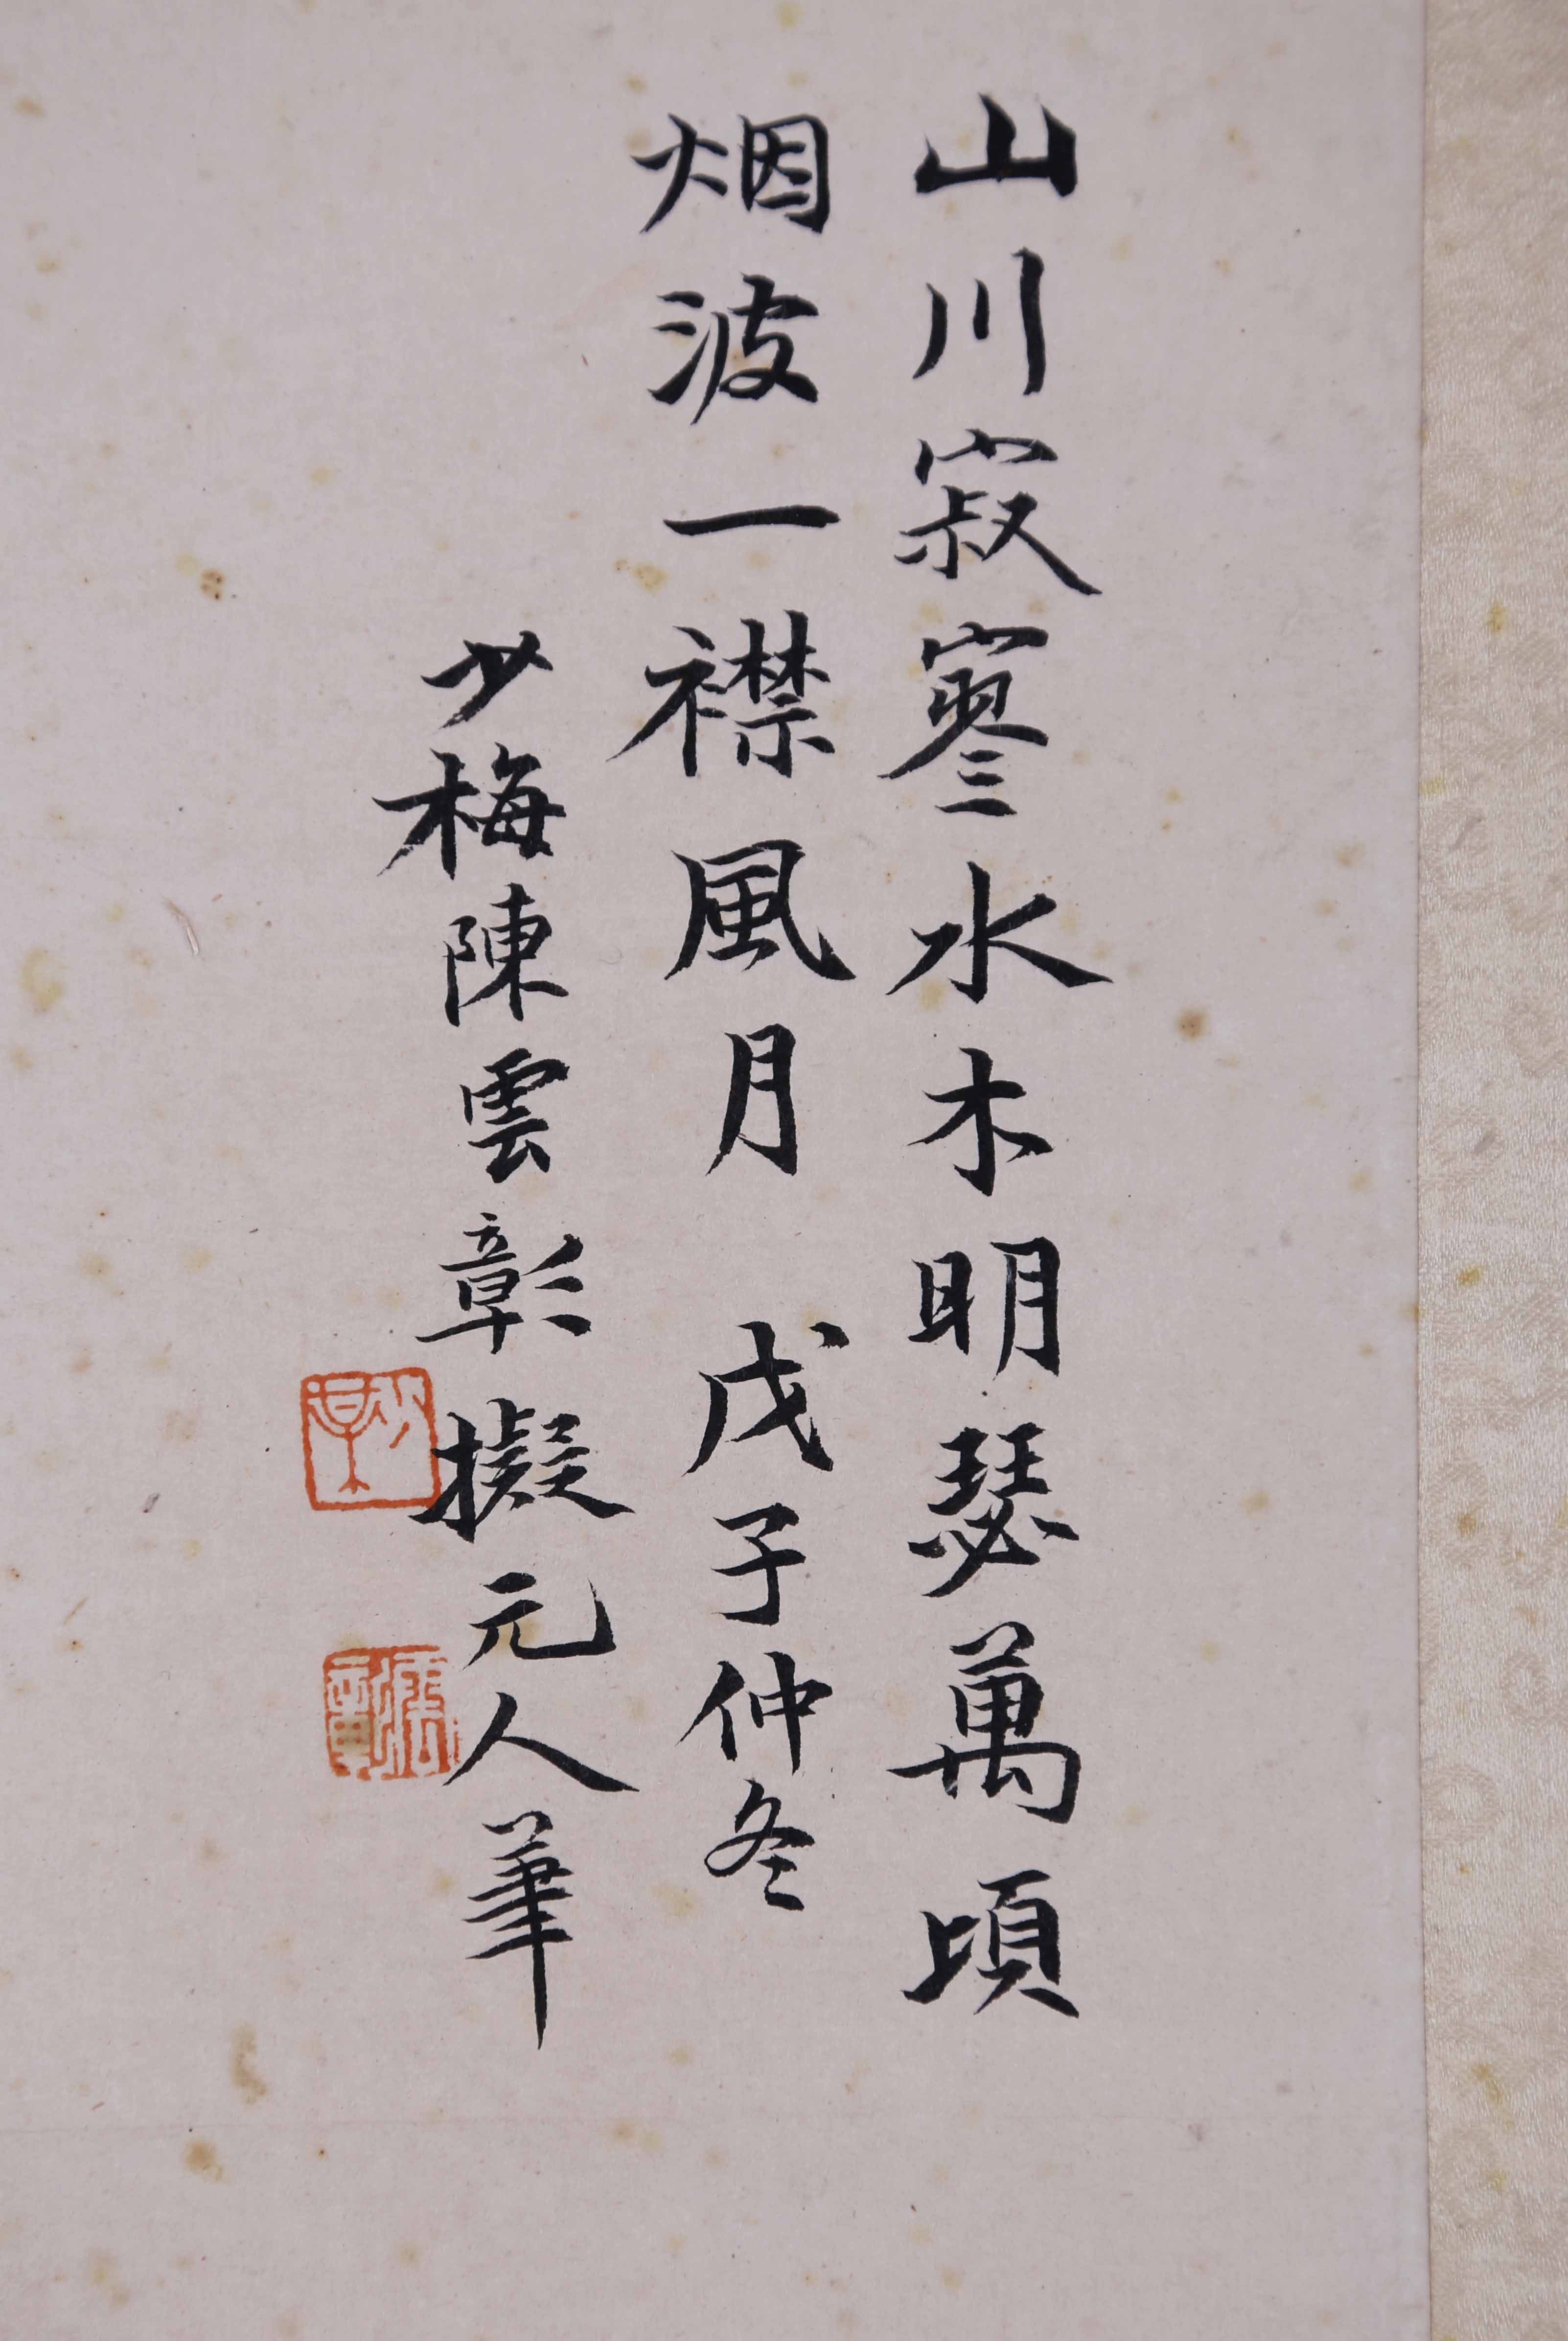 山川寂寥水木明瑟萬頃
烟波一襟風月 戊子仲冬
少梅陳雲彰擬元人筆